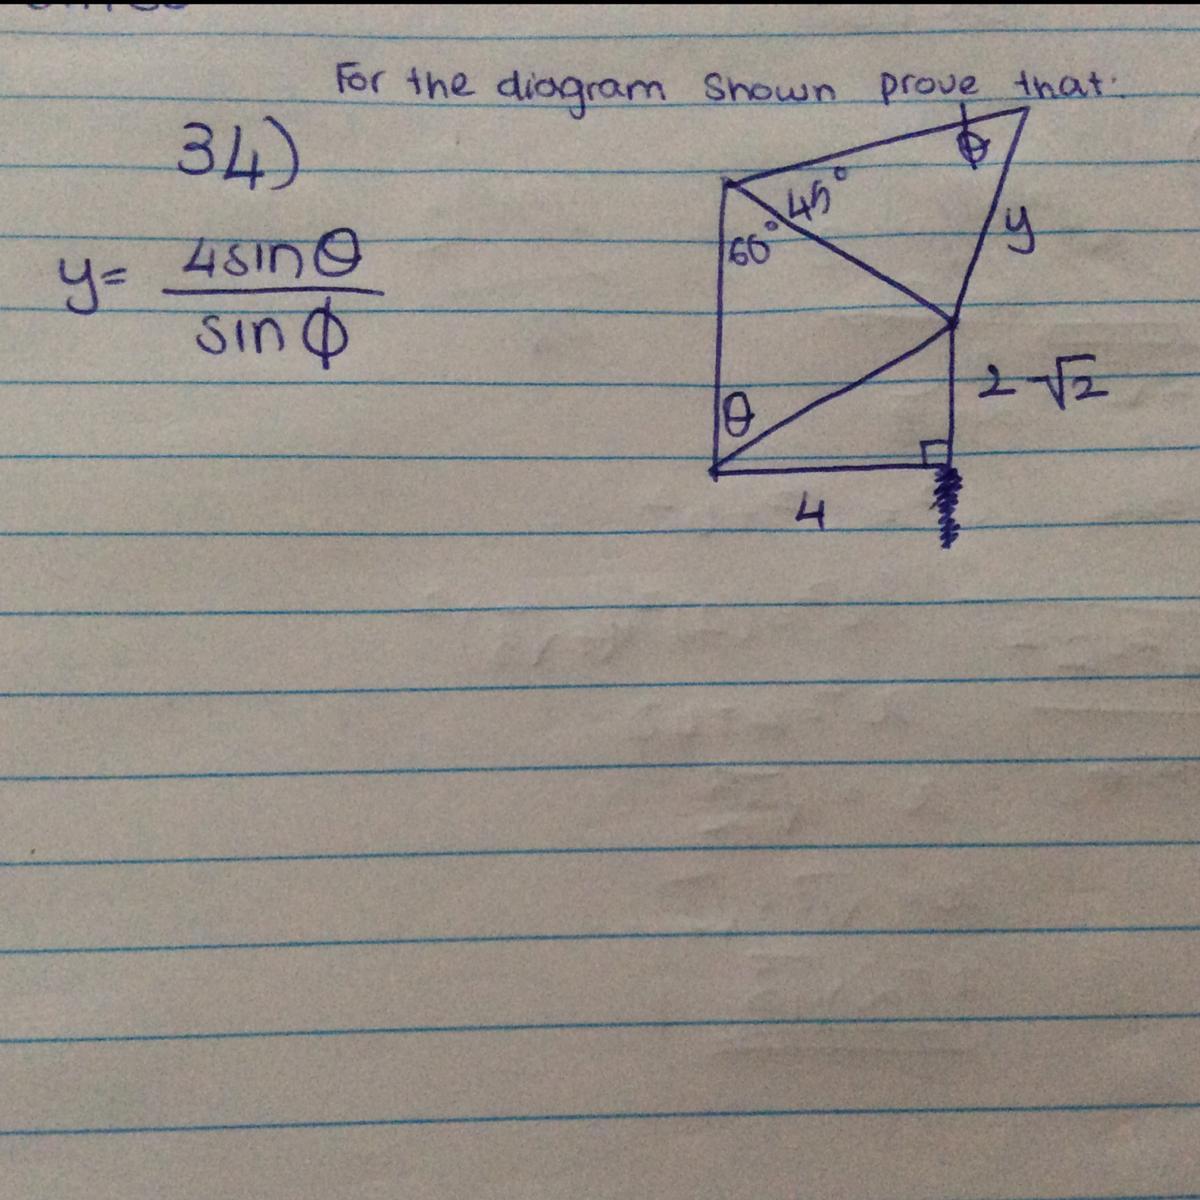 For the diagram shown prove that:
34)
y= 4sinθ
sin ϕ
ϕ
45°
60°
y
2√2
θ
4